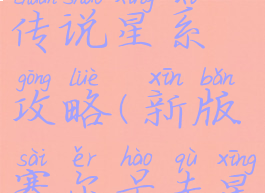 chuán shuō xīng xì
传说星系
gōng lüè xīn bǎn
攻略(新版
sài ěr hào qù xīng
赛尔号去星